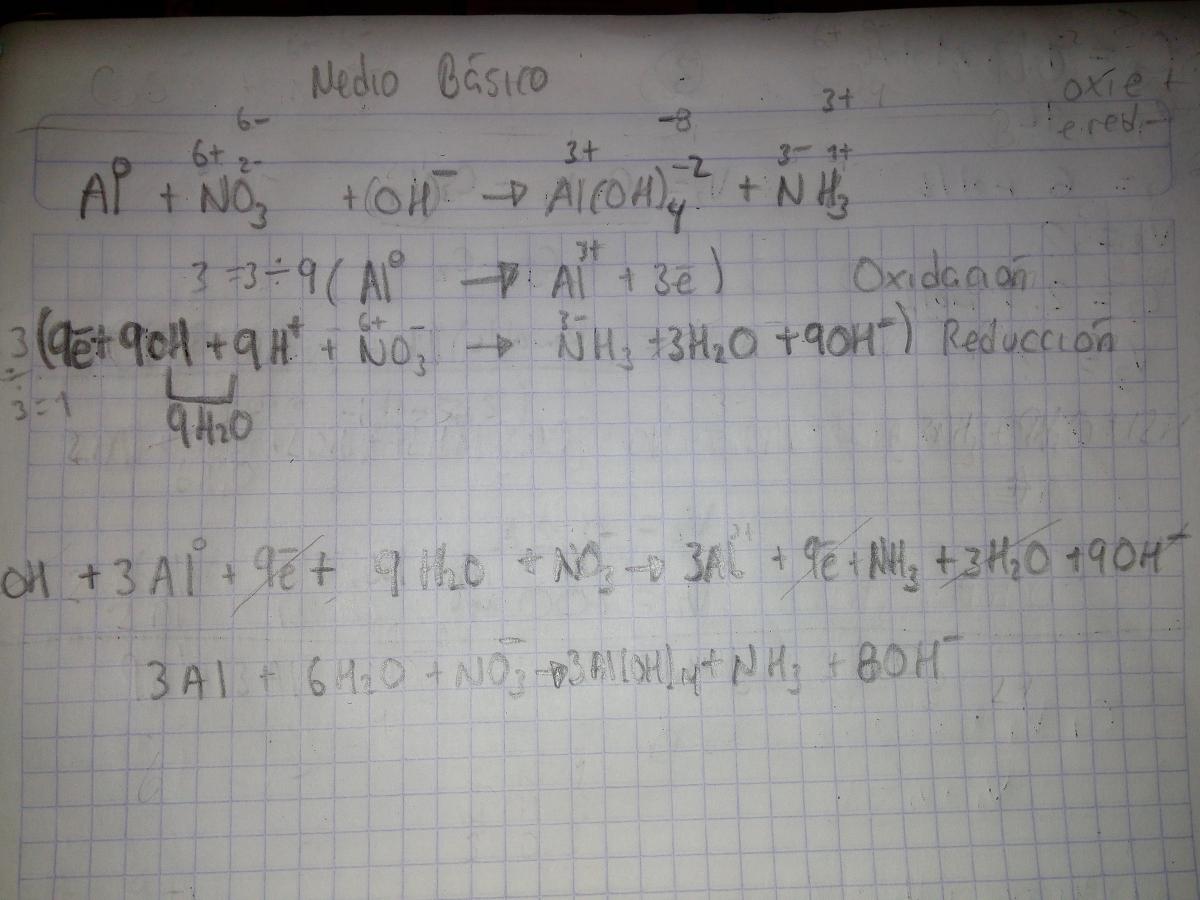 Medio Básico
oxi e +
e red. -
6- -8 3+
6+ 2- 3+ 3- 1+
Al⁰ + NO₃ + (OH⁻ → Al(OH)₄⁻² + NH₃
3 = 3 ÷ 9 ( Al⁰ → Al³⁺ + 3ē ) Oxidación
3 (9ē + 9OH + 9H⁺ + NO₃⁻ → NH₃ + 3H₂O + 9OH⁻) Reducción
6+ 3-
÷
3 = 1
9H₂O
OH + 3Al⁰ + 9ē + 9H₂O + NO₃⁻ → 3Al³⁺ + 9ē + NH₃ + 3H₂O + 9OH⁻
3Al + 6H₂O + NO₃⁻ → 3Al(OH)₄ + NH₃ + 8OH⁻